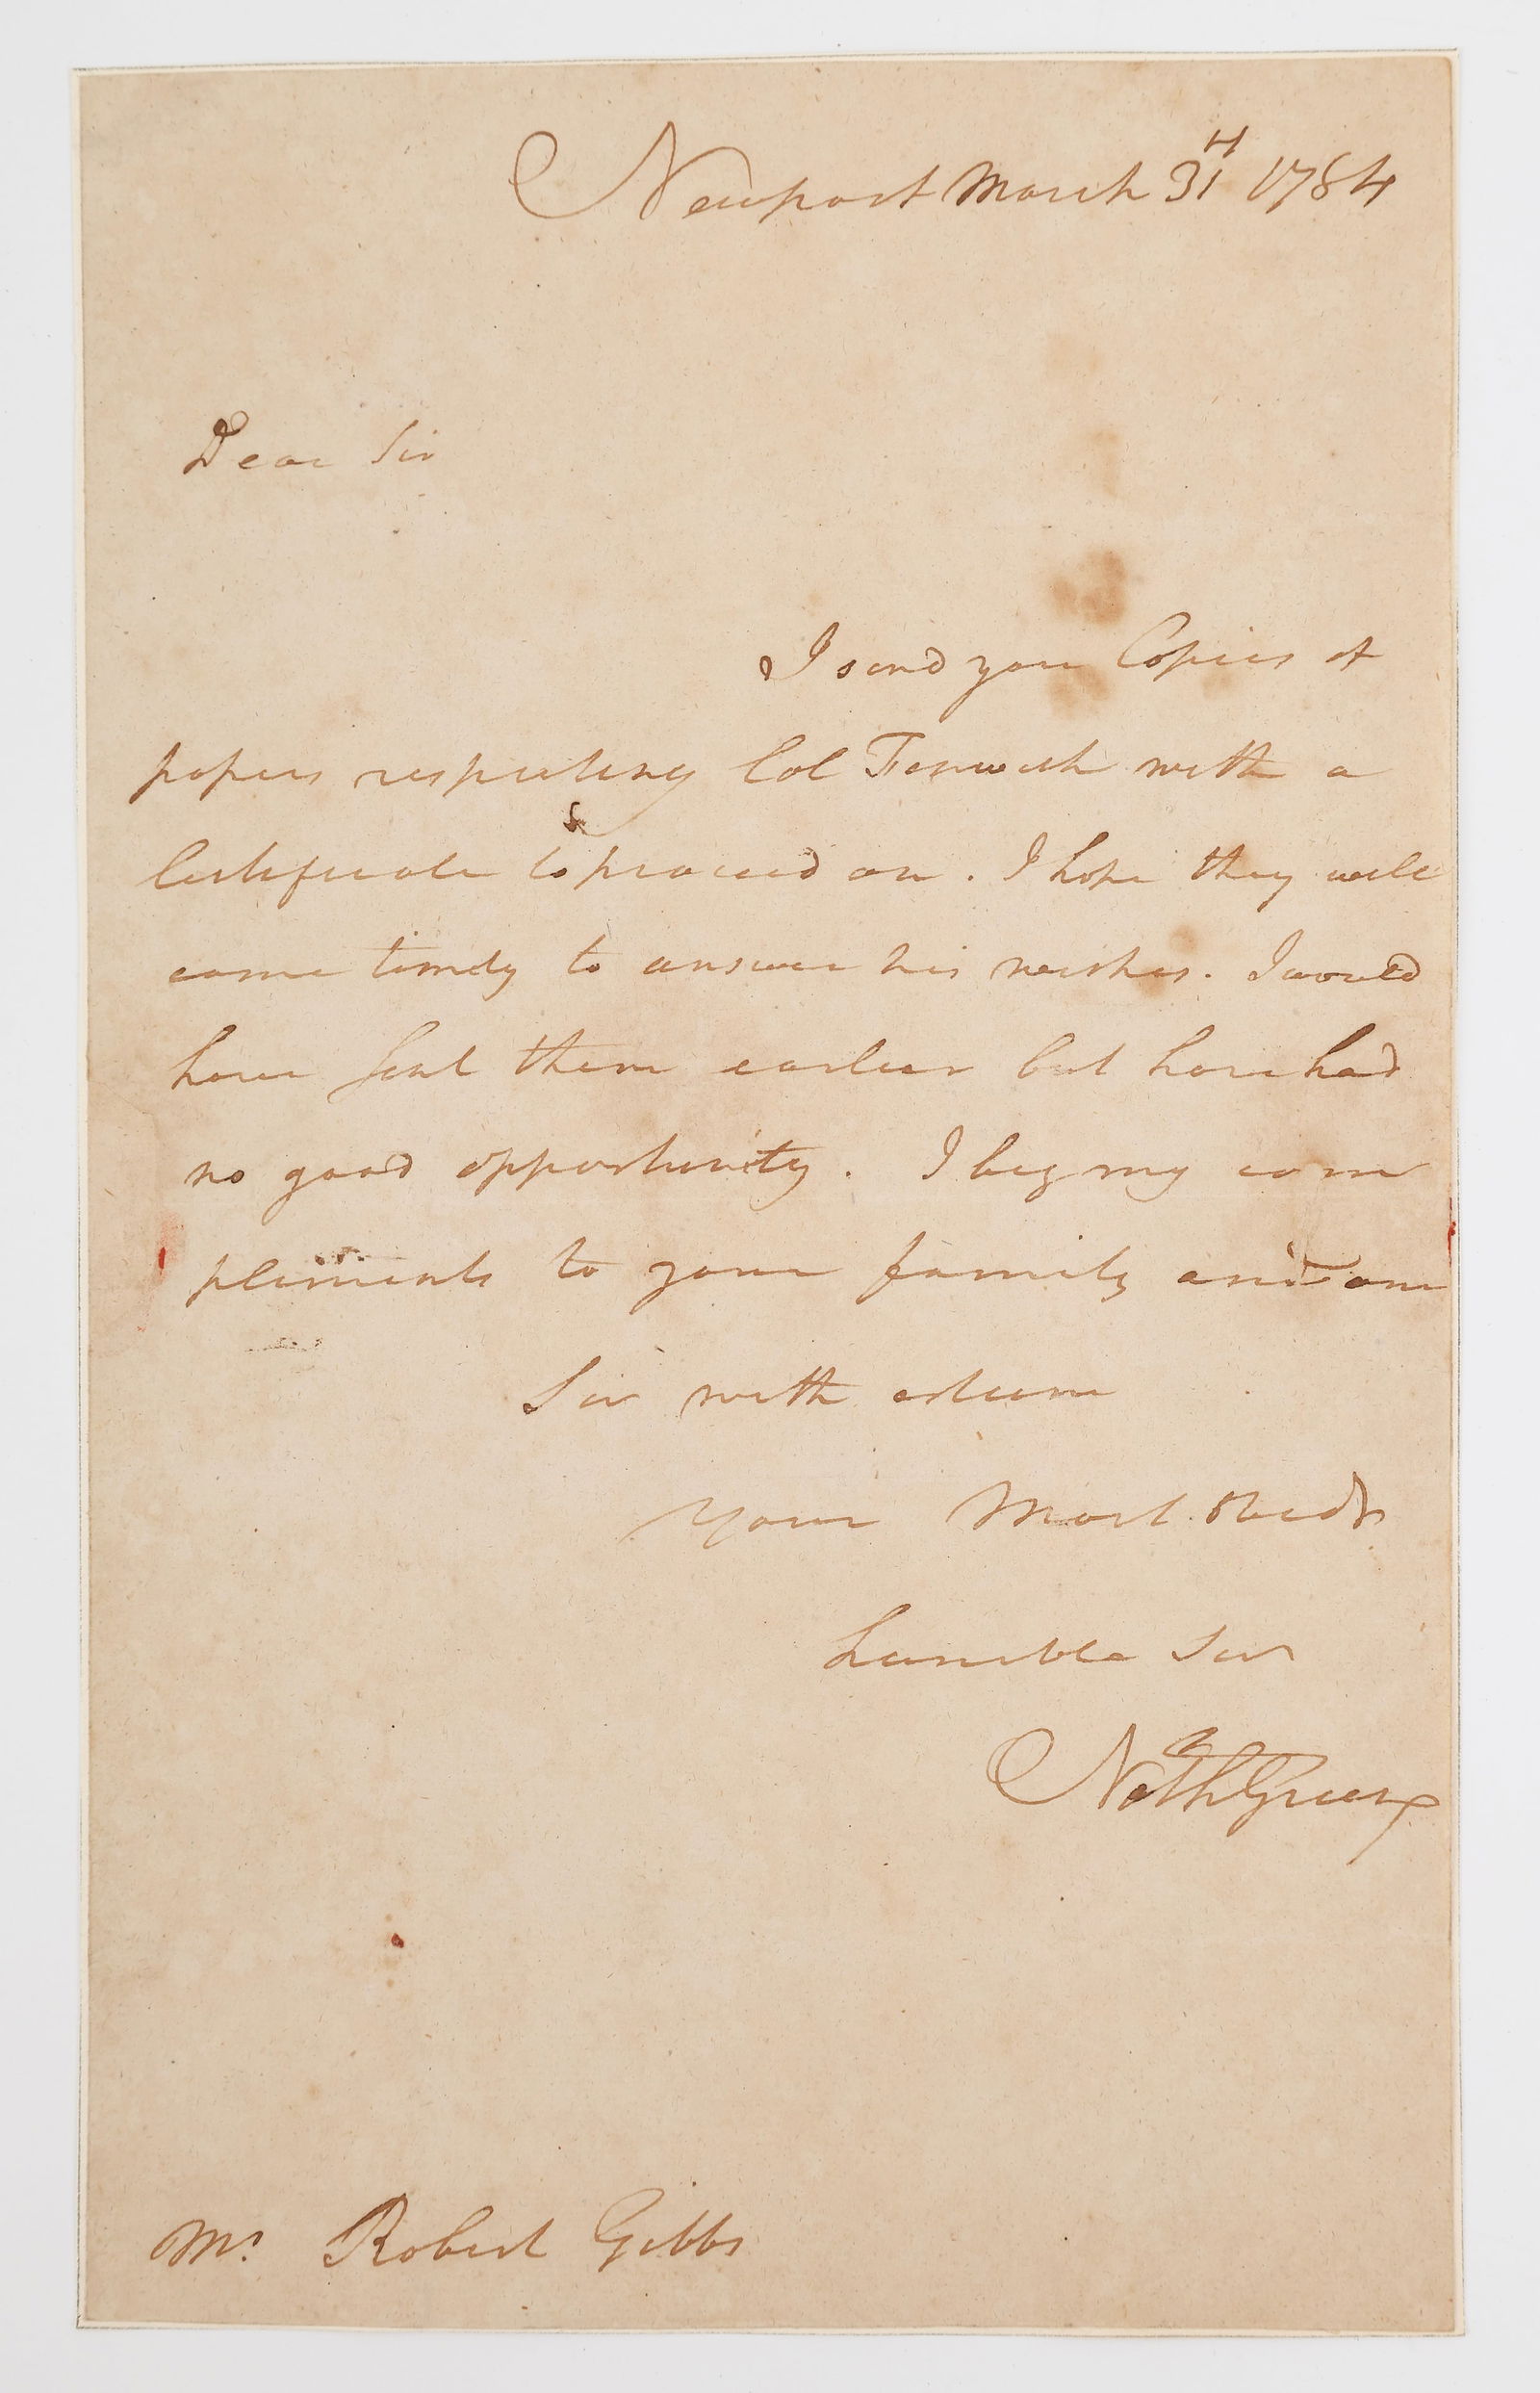 Newport March 31st 1784
Dear Sir
I send you Copies of
papers respecting Col Fenwick with a
Certificate to proceed on. I hope they will
come timely to answer his wishes. I would
have sent them earlier but have had
no good opportunity. I beg my com
pliments to your family and am
Sir with esteem
Your Most Obedt
humble Ser
Nath Greene
Mr Robert Gibbs